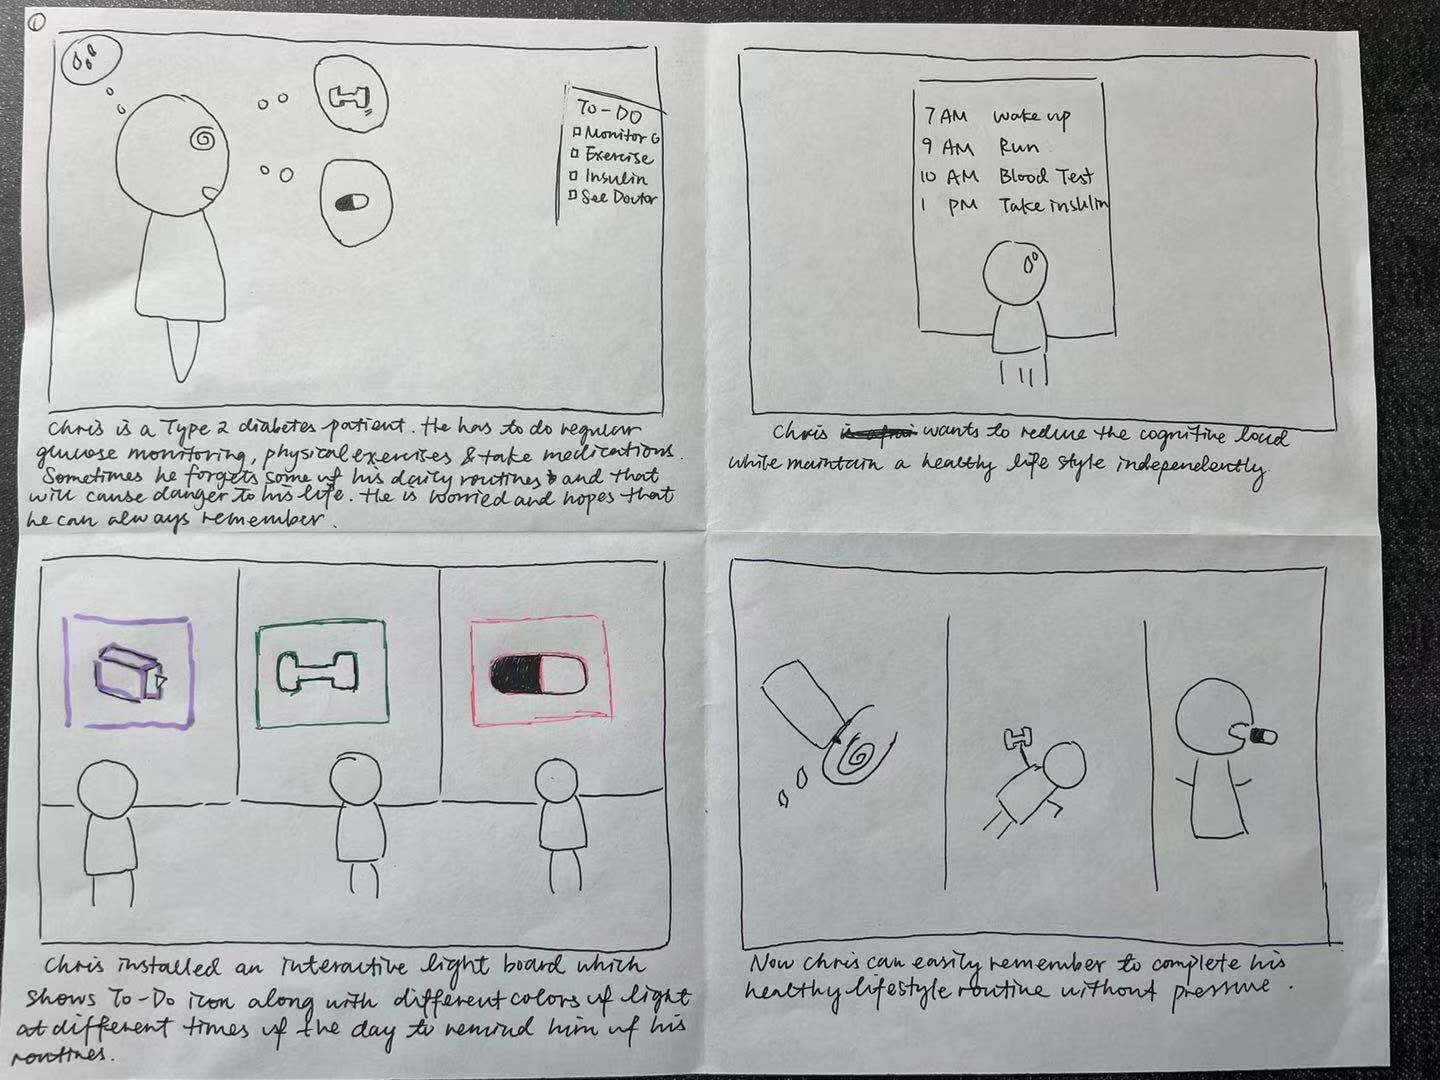 ①
To-DO
Monitor G
Exercise
Insulin
See Doctor
Chris is a Type 2 diabetes patient. He has to do regular
glucose monitoring, physical exercises & take medications.
Sometimes he forgets some of his daily routines and that
will cause danger to his life. He is worried and hopes that
he can always remember.
7 AM wake up
9 AM Run
10 AM Blood Test
1 PM Take insulin
Chris wants to reduce the cognitive load
while maintain a healthy life style independently
Chris installed an interactive light board which
shows To-Do icon along with different colors of light
at different times of the day to remind him of his
routines.
Now Chris can easily remember to complete his
healthy lifestyle routine without pressure.